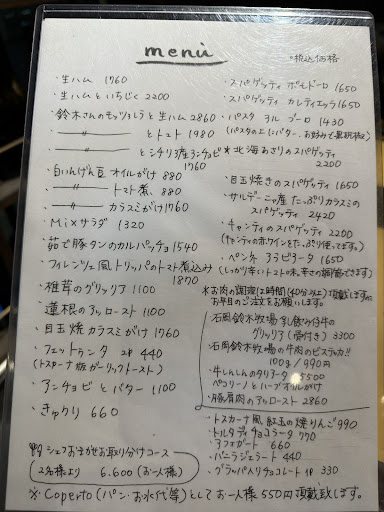 menù
*税込価格
・生ハム 1760
・生ハムといちじく 2200
・鈴木さんのモッツァレラと生ハム 2860
・ 〃 とトマト 1980
・ 〃 とシチリア産アンチョビ 1760
・白いんげん豆オイルがけ 880
・ 〃 トマト煮 880
・ 〃 カラスミがけ 1760
・Mixサラダ 1320
・茹で豚タンのカルパッチョ 1540
・フィレンツェ風トリッパのトマト煮込み 1870
・椎茸のグリッリア 1100
・蓮根のアッロースト 1100
・目玉焼カラスミがけ 1760
・フェットゥンタ 2P 440
(トスカーナ版ガーリックトースト)
・アンチョビとバター 1100
・きゅうり 660
シェフおまかせお取り分けコース
(2名様より 6.600(お一人様)
・スパゲッティ ポモドーロ 1650
・スパゲッティ カレティエッラ 1650
・パスタ アル ブーロ 1430
(パスタの上にバター、お好みで黒胡椒)
*北海あさりのスパゲッティ 2200
・目玉焼きのスパゲッティ 1650
・サルデーニャ産たっぷりカラスミのスパゲッティ 2420
・キャンティのスパゲッティ 2200
(キャンティの赤ワインをたっぷり使ってます。)
・ペンネ アラビアータ 1650
(しっかり辛いトマトの味。辛さの調節できます)
*お肉の調理は時間(40分以上)頂戴します。
お早目のご注文をお願いします。
・石岡鈴木牧場乳飲み仔牛の
グリッリア(骨付き) 3300
・石岡鈴木牧場の牛肉のビステッカ!!
100g/990円
・牛しんしんのタリアータ 5500
ペコリーノとハーブオイルがけ
・豚肩肉のアッロースト 2860
・トスカーナ風紅玉の焼りんご 990
・トルタ ディ チョコラータ 770
・アフォガート 660
・バニラジェラート 440
・グラッパ入りチョコレート 1P 330
※Coperto(パン・お水代等)としてお一人様550円頂戴致します。